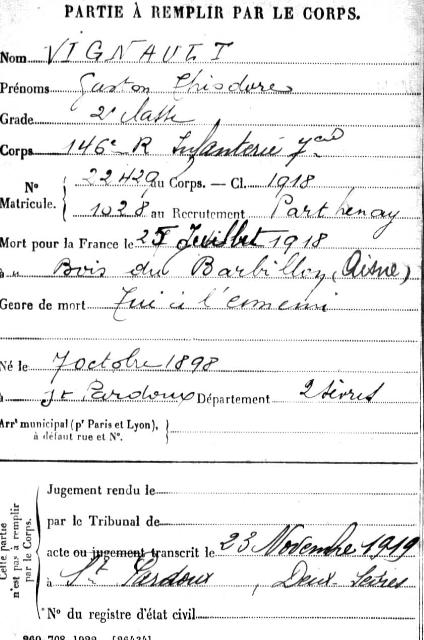 PARTIE À REMPLIR PAR LE CORPS.
Nom VIGNAULT
Prénoms Gaston Théodore
Grade 2e classe
Corps 146e R Infanterie 7e Cie
No Matricule. { 22429 au Corps. — Cl. 1918
1028 au Recrutement Parthenay
Mort pour la France le 25 Juillet 1918
à Bois du Barbillon (Aisne)
Genre de mort Tué à l'ennemi
Né le 7 octobre 1898
à St Pardoux Département 2 Sèvres
Arrt municipal (pr Paris et Lyon),
à défaut rue et No.
Cette partie n'est pas à remplir par le Corps.
Jugement rendu le
par le Tribunal de
acte ou jugement transcrit le 23 Novembre 1919
à St Pardoux, Deux Sèvres
No du registre d'état civil